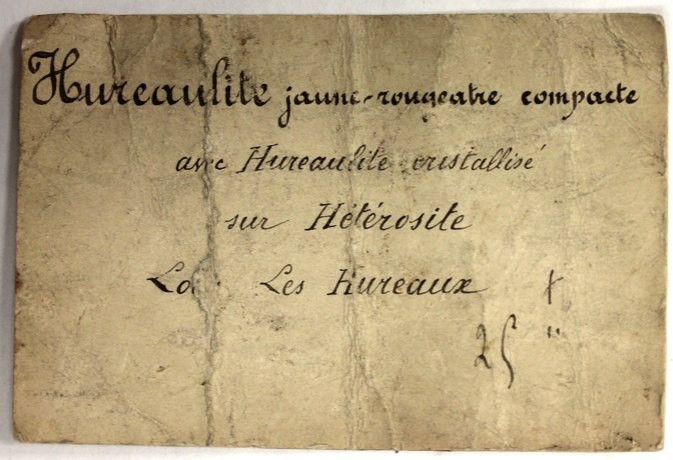 Hureaulite jaune-rougeatre compacte
avec Hureaulite cristallisé
sur Hétérosite
Les Hureaux
25 "